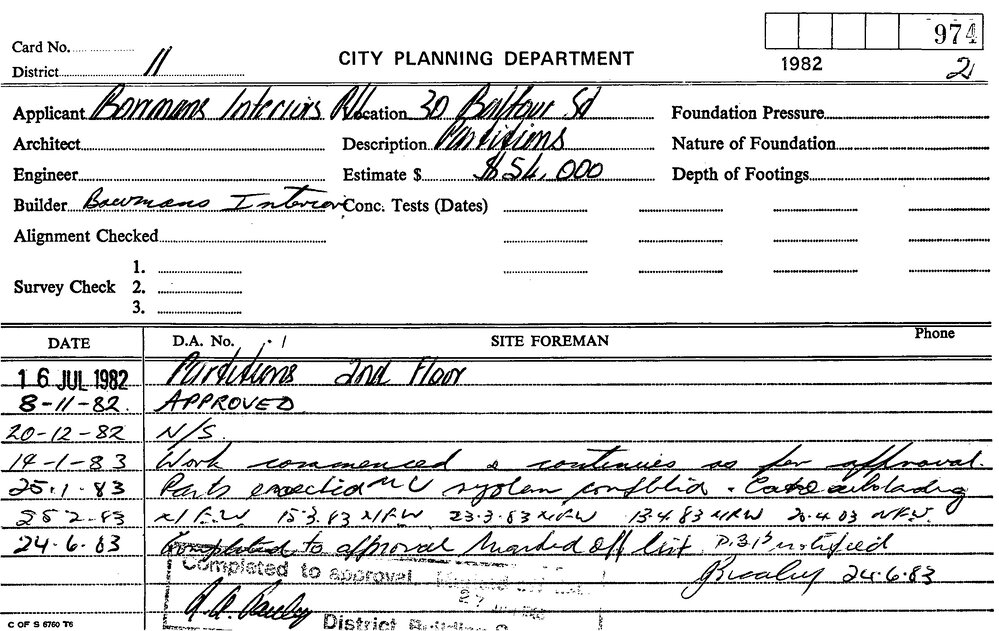 974
Card No.
CITY PLANNING DEPARTMENT
1982 2
District 11
Applicant Bowmans Interiors P/L Location 30 Balfour Sd Foundation Pressure
Architect Description Partitions Nature of Foundation
Engineer Estimate $ $54,000 Depth of Footings
Builder Bowmans Interior Conc. Tests (Dates)
Alignment Checked
1.
Survey Check 2.
3.
DATE D.A. No. SITE FOREMAN Phone
16 JUL 1982 Partitions 2nd Floor
8-11-82. APPROVED
20-12-82 N/S.
14-1-83 Work commenced & continues as per approval.
25.1.83 Parts erected A/C system
25 2-83 15.3.83 23.3.83 13.4.83
24.6.83 Completed to approval Marked off list notified
24.6.83
Completed to approval
District Building
C OF S 6760 T6